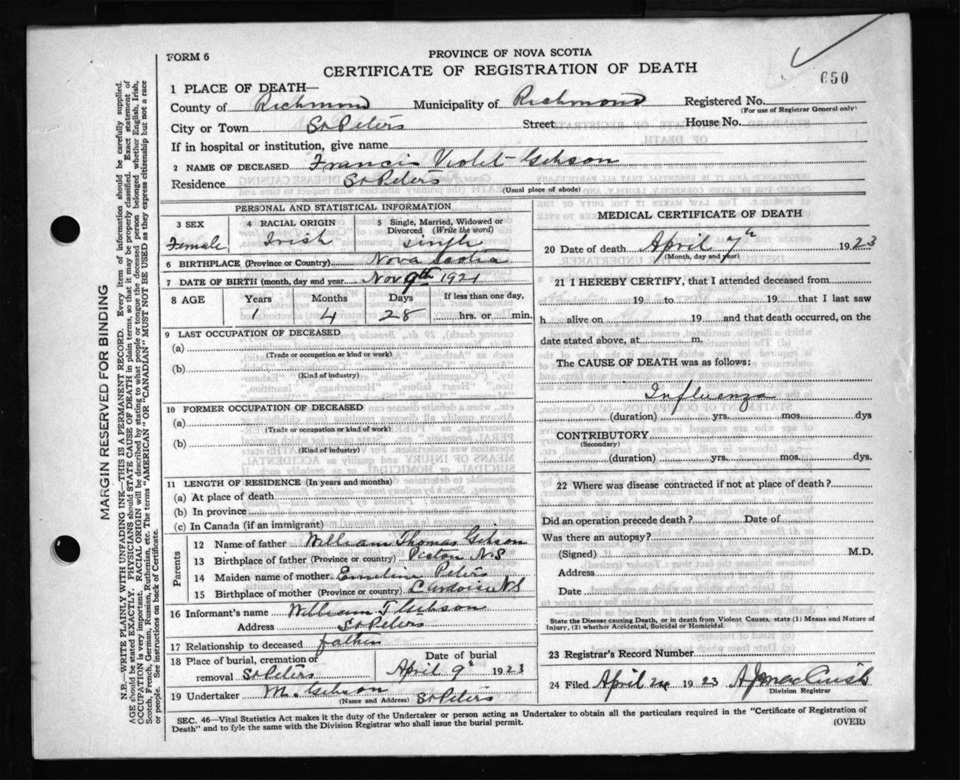 FORM 6
PROVINCE OF NOVA SCOTIA
CERTIFICATE OF REGISTRATION OF DEATH
650
1 PLACE OF DEATH—
County of Richmond Municipality of Richmond Registered No.
(For use of Registrar General only)
City or Town St Peters Street House No.
If in hospital or institution, give name
2 NAME OF DECEASED Francis Violet Gibson
Residence St Peters
(Usual place of abode)
PERSONAL AND STATISTICAL INFORMATION
3 SEX
Female
4 RACIAL ORIGIN
Irish
5 Single, Married, Widowed or Divorced (Write the word)
single
6 BIRTHPLACE (Province or Country) Nova Scotia
7 DATE OF BIRTH (month, day and year) Nov 9th 1921
8 AGE Years Months Days If less than one day,
1 4 28 hrs. or min.
9 LAST OCCUPATION OF DECEASED
(a)
(Trade or occupation or kind of work)
(b)
(Kind of industry)
10 FORMER OCCUPATION OF DECEASED
(a)
(Trade or occupation or kind of work)
(b)
(Kind of industry)
11 LENGTH OF RESIDENCE (In years and months)
(a) At place of death
(b) In province
(c) In Canada (if an immigrant)
Parents
12 Name of father William Thomas Gibson
13 Birthplace of father (Province or country) Pictou N.S
14 Maiden name of mother Emeline Peters
15 Birthplace of mother (Province or country) NS
16 Informant's name William T Gibson
Address St Peters
17 Relationship to deceased father
18 Place of burial, cremation or removal St Peters
Date of burial
April 9th 1923
19 Undertaker M. Gibson
(Name and Address) St Peters
MEDICAL CERTIFICATE OF DEATH
20 Date of death April 7th 1923
(Month, day and year)
21 I HEREBY CERTIFY, that I attended deceased from
19 to 19 that I last saw
h alive on 19 and that death occurred, on the
date stated above, at m.
The CAUSE OF DEATH was as follows:
Influenza
(duration) yrs. mos. dys
CONTRIBUTORY
(Secondary)
(duration) yrs. mos. dys.
22 Where was disease contracted if not at place of death?
Did an operation precede death? Date of
Was there an autopsy?
(Signed) M.D.
Address
Date
State the Disease causing Death, or in death from Violent Causes, state (1) Means and Nature of
Injury, (2) whether Accidental, Suicidal or Homicidal.
23 Registrar's Record Number
24 Filed April 24 1923
Division Registrar
SEC. 46—Vital Statistics Act makes it the duty of the Undertaker or person acting as Undertaker to obtain all the particulars required in the "Certificate of Registration of
Death" and to fyle the same with the Division Registrar who shall issue the burial permit.
(OVER)
MARGIN RESERVED FOR BINDING
N.B.—WRITE PLAINLY WITH UNFADING INK—THIS IS A PERMANENT RECORD. Every item of information should be carefully supplied.
AGE should be stated EXACTLY. PHYSICIANS should STATE CAUSE OF DEATH in plain terms, so that it may be properly classified. Exact statement of
OCCUPATION is very important. RACIAL ORIGIN will be described by stating to what people or tongue the deceased person belonged whether English, Irish,
Scotch, French, German, Russian, Ruthenian, etc. The terms "AMERICAN" OR "CANADIAN" MUST NOT BE USED as they express citizenship but not a race
or people. See instructions on back of Certificate.